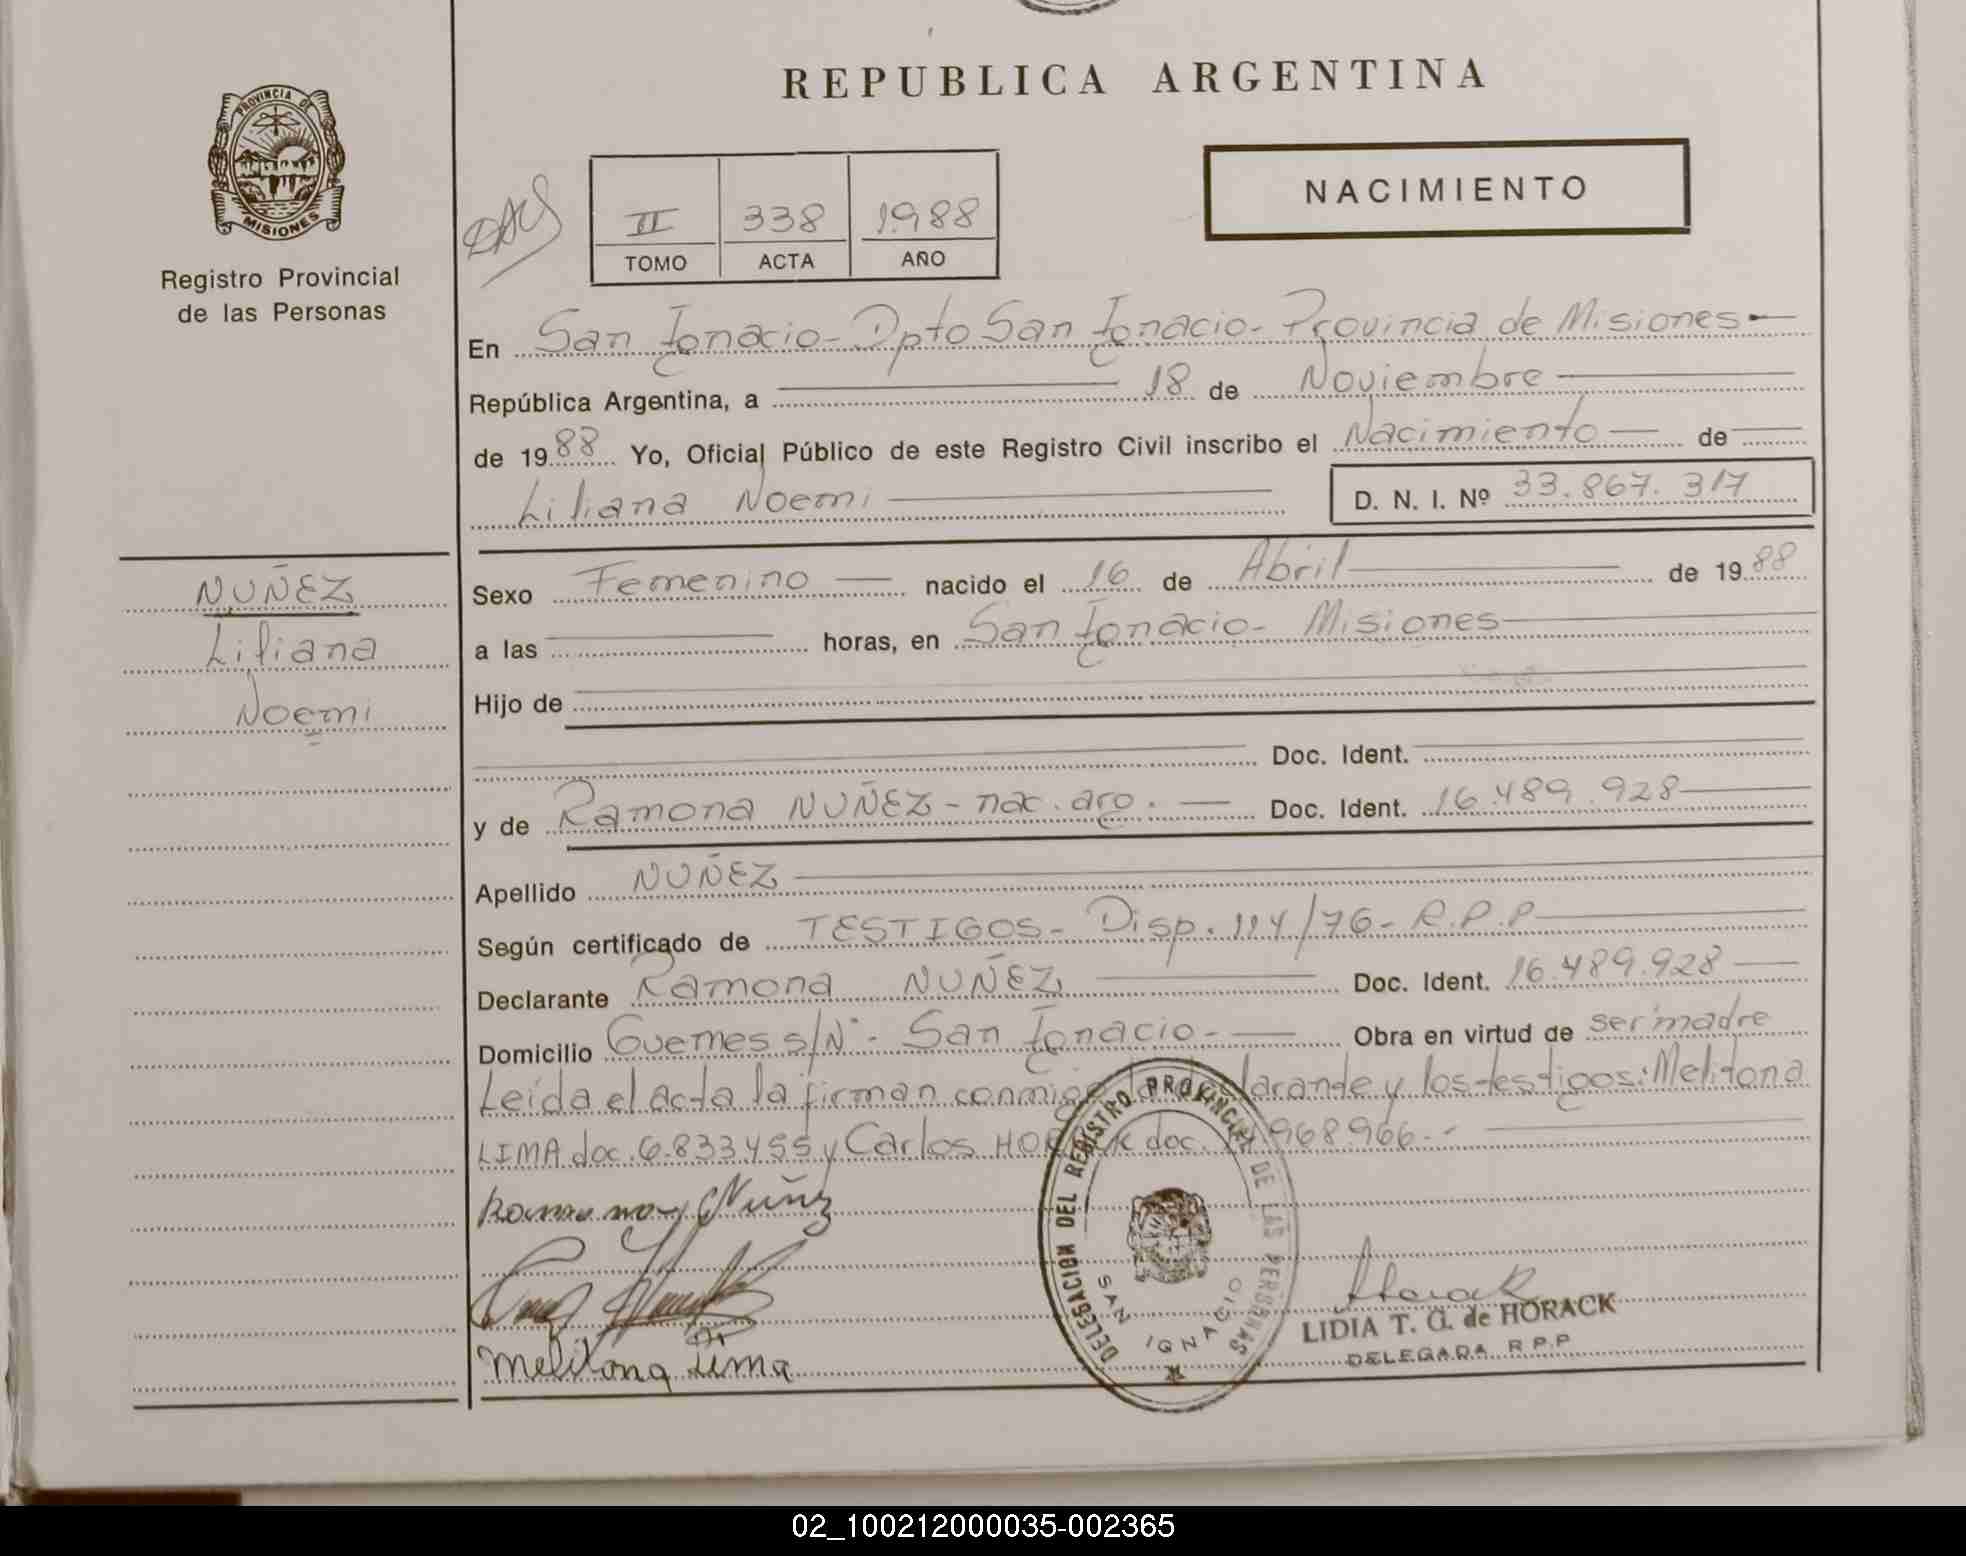 REPUBLICA ARGENTINA
PROVINCIA DE
MISIONES
Registro Provincial
de las Personas
II 338 1988
TOMO ACTA AÑO
NACIMIENTO
En San Ignacio - Dpto San Ignacio - Provincia de Misiones -
República Argentina, a 18 de Noviembre
de 1988 Yo, Oficial Público de este Registro Civil inscribo el Nacimiento - de
Liliana Noemi
D. N. I. Nº 33.867.317
NUÑEZ
Liliana
Noemi
Sexo Femenino - nacido el 16 de Abril de 1988
a las horas, en San Ignacio - Misiones
Hijo de
Doc. Ident.
y de Ramona NUÑEZ - nac. arg. - Doc. Ident. 16.489.928
Apellido NUÑEZ
Según certificado de TESTIGOS - Disp. 114/76 - R.P.P
Declarante Ramona NUÑEZ Doc. Ident. 16.489.928
Domicilio Guemes s/Nº - San Ignacio - Obra en virtud de ser madre
Leída el acta la firman conmigo la declarante y los testigos: Melitona
LIMA doc. 6.833455 y Carlos doc. 968.966.-
Nuñz
Melitona Lima
DELEGACION DEL REGISTRO PROVINCIAL DE LAS PERSONAS
SAN IGNACIO
Horack
LIDIA T. G. de HORACK
DELEGADA R.P.P
02_100212000035-002365